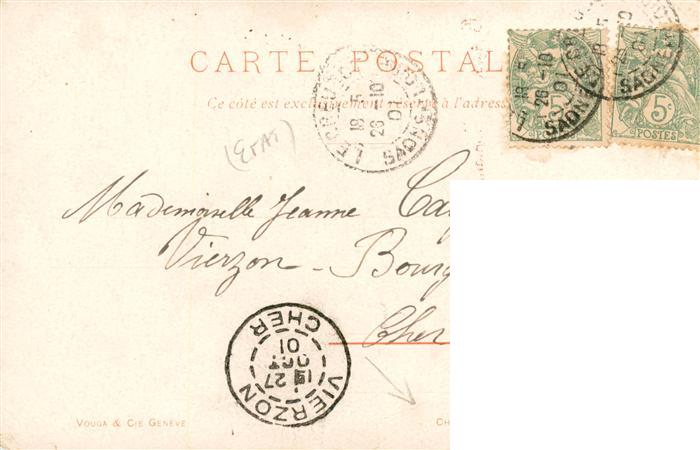 CARTE POSTAL
Ce côté est exclusivement réservé à l'adress
18 5
26 -10
01
SAONE
5c
POSTES
5c
POSTES
Mademoiselle Jeanne
Vierzon - Bourg
Cher
VIERZON
CHER
27
OCT
01
VOUGA & CIE GENÈVE
CH